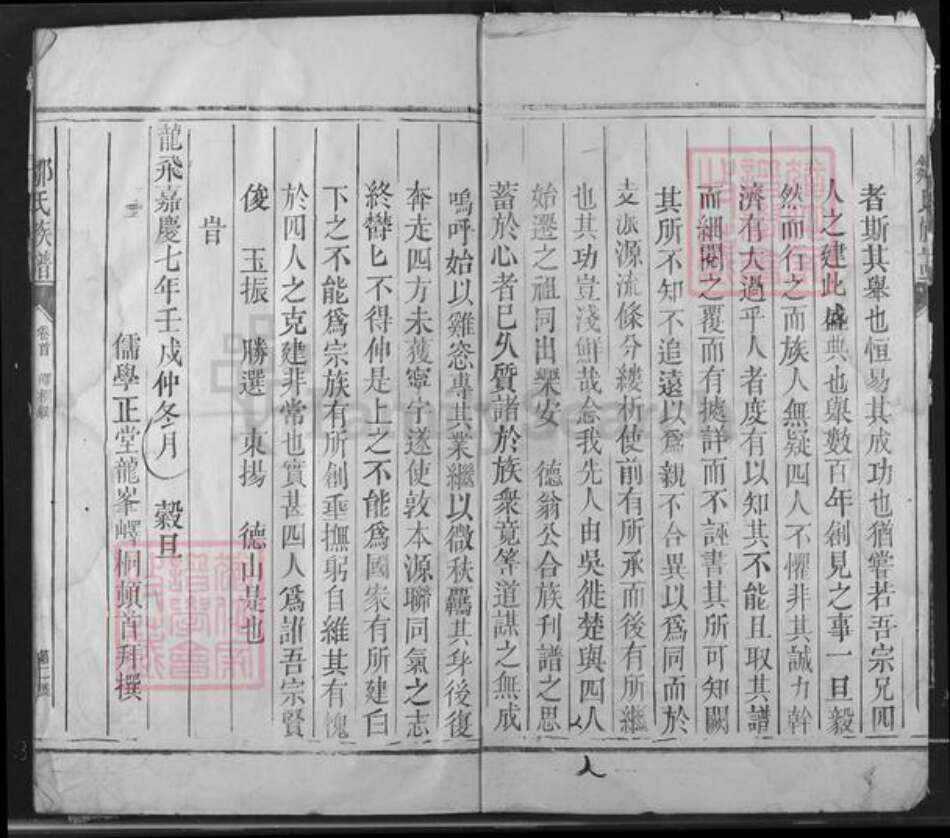 者斯其舉也恒易其成功也猶嘗若吾宗兄四
人之建此盛典也與數百年創見之事一旦毅
然而行之而族人無疑四人不懼非其誠力幹
濟有大過乎人者度有以知其不能且取其譜
而細閱之覆而有據詳而不誣書其所可知闕
其所不知不追遠以爲親不合異以爲同而於
支派源流條分縷析使前有所承而後有所繼
也其功豈淺鮮哉念我先人由吳徙楚與四人
始遷之祖同出樂安 德翁公合族刊譜之思
蓄於心者已久質諸於族衆竟筭道謀之無成
嗚呼始以雞窓專其業繼以微秩羈其身後復
奔走四方未獲寧宇遂使敦本源聯同氣之志
終欝匕不得伸是上之不能爲國家有所建白
下之不能爲宗族有所創垂撫躬自維其有愧
於四人之克建非常也實甚四人爲誰吾宗賢
俊 玉振 勝選 東揚 德山是也
旹
龍飛嘉慶七年壬戌仲冬月 穀旦
儒學正堂龍峯嶧桐頓首拜撰
氏族譜
卷首